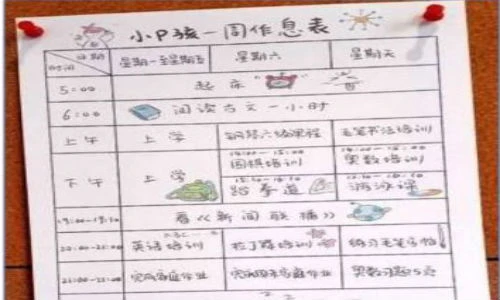 小P孩一周作息表
日期
时间
星期一至星期五 星期六 星期天
5:00 起床
6:00 阅读古文一小时
上午 上学 钢琴六级课程 毛笔书法培训
14:00-15:00
围棋培训 奥数培训
下午 上学
跆拳道 游泳课
19:00-19:30 看《新闻联播》
ABC
20:00-21:00 英语培训 拉丁舞培训 练习毛笔字帖
21:00-22:00 完成家庭作业 完成周末家庭作业 奥数习题5页